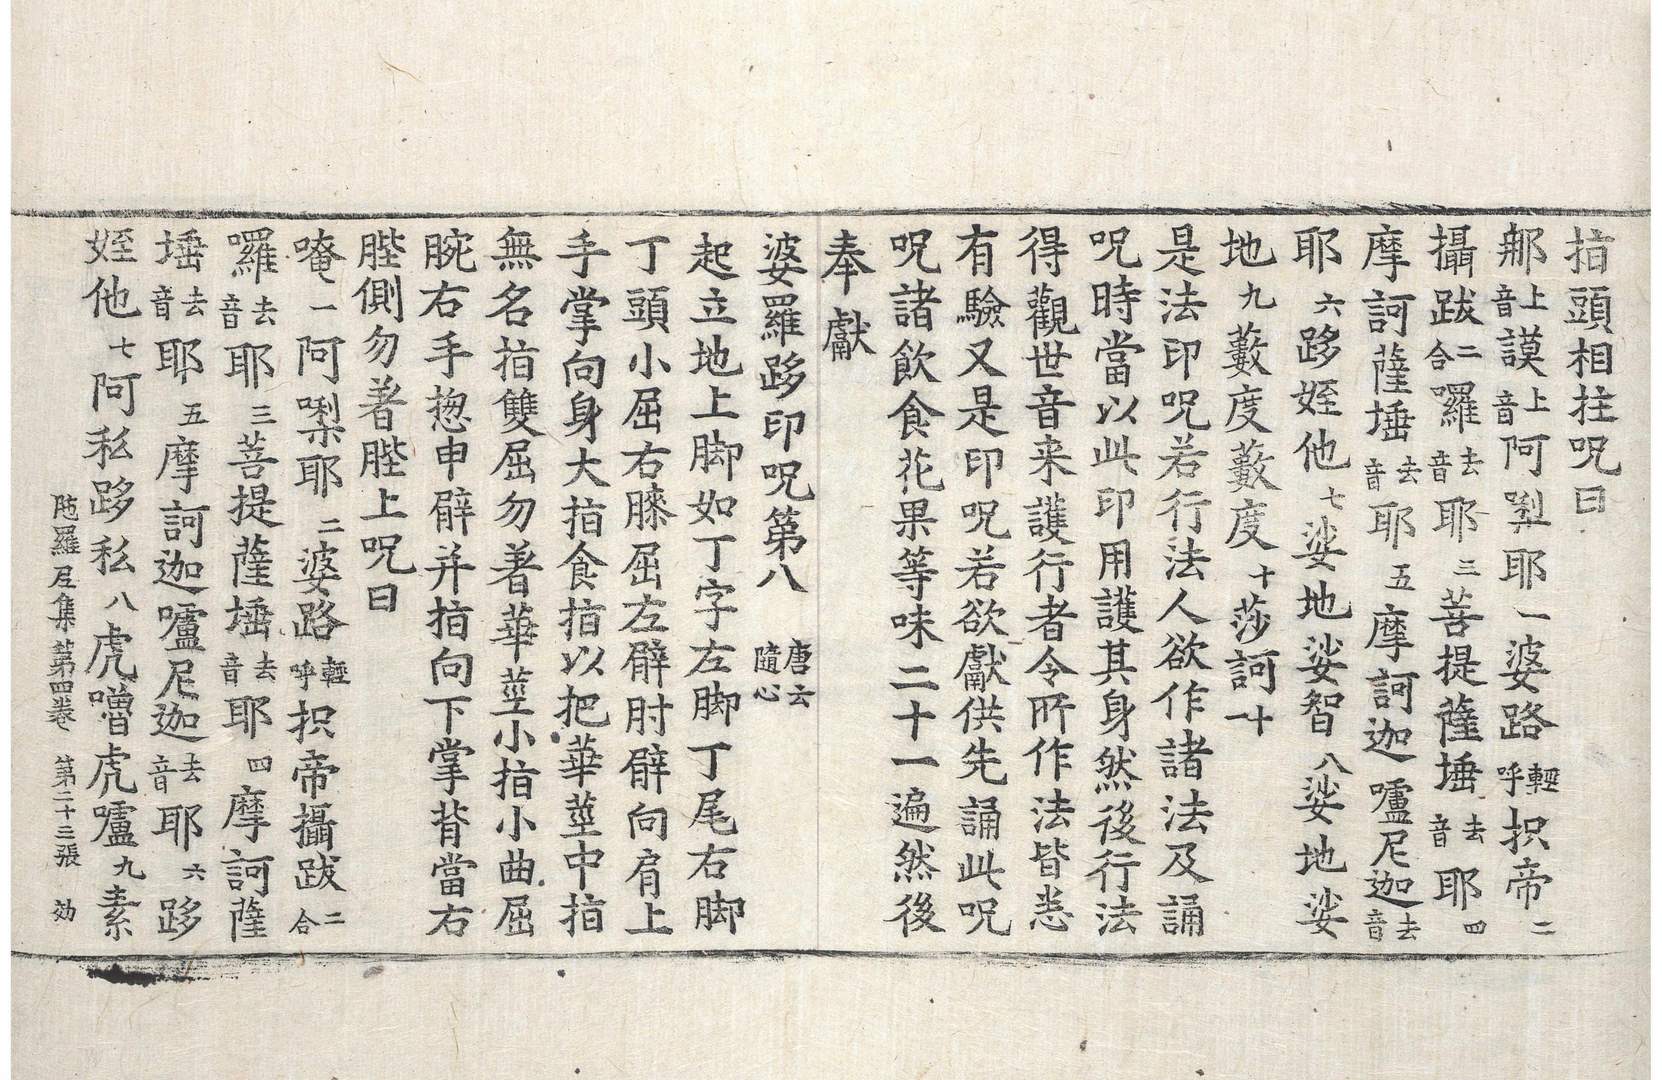 指頭相拄呪曰
那上音謨上音阿㗚耶一婆路輕呼抧帝二
攝跋二合囉去音耶三菩提薩埵去音耶四
摩訶薩埵去音耶五摩訶迦嚧尼迦去音
耶六跢姪他七娑地娑智八娑地娑
地九藪度藪度十莎訶十一
是法印呪若行法人欲作諸法及誦
呪時當以此印用護其身然後行法
得觀世音来護行者令所作法皆悉
有驗又是印呪若欲獻供先誦此呪
呪諸飲食花果等味二十一遍然後
奉獻
婆羅跢印呪第八唐云隨心
起立地上脚如丁字左脚丁尾右脚
丁頭小屈右膝屈左臂肘臂向肩上
手掌向身大指食指以把華莖中指
無名指雙屈勿著華莖小指小曲屈
腕右手惣申臂并指向下掌背當右
䏶側勿著䏶上呪曰
唵一阿㗚耶二婆路輕呼抧帝攝跋二合
囉去音耶三菩提薩埵去音耶四摩訶薩
埵去音耶五摩訶迦嚧尼迦去音耶六跢
姪他七阿私跢私八虎嚕虎嚧九素
陁羅尼集第四卷 第二十三張 効